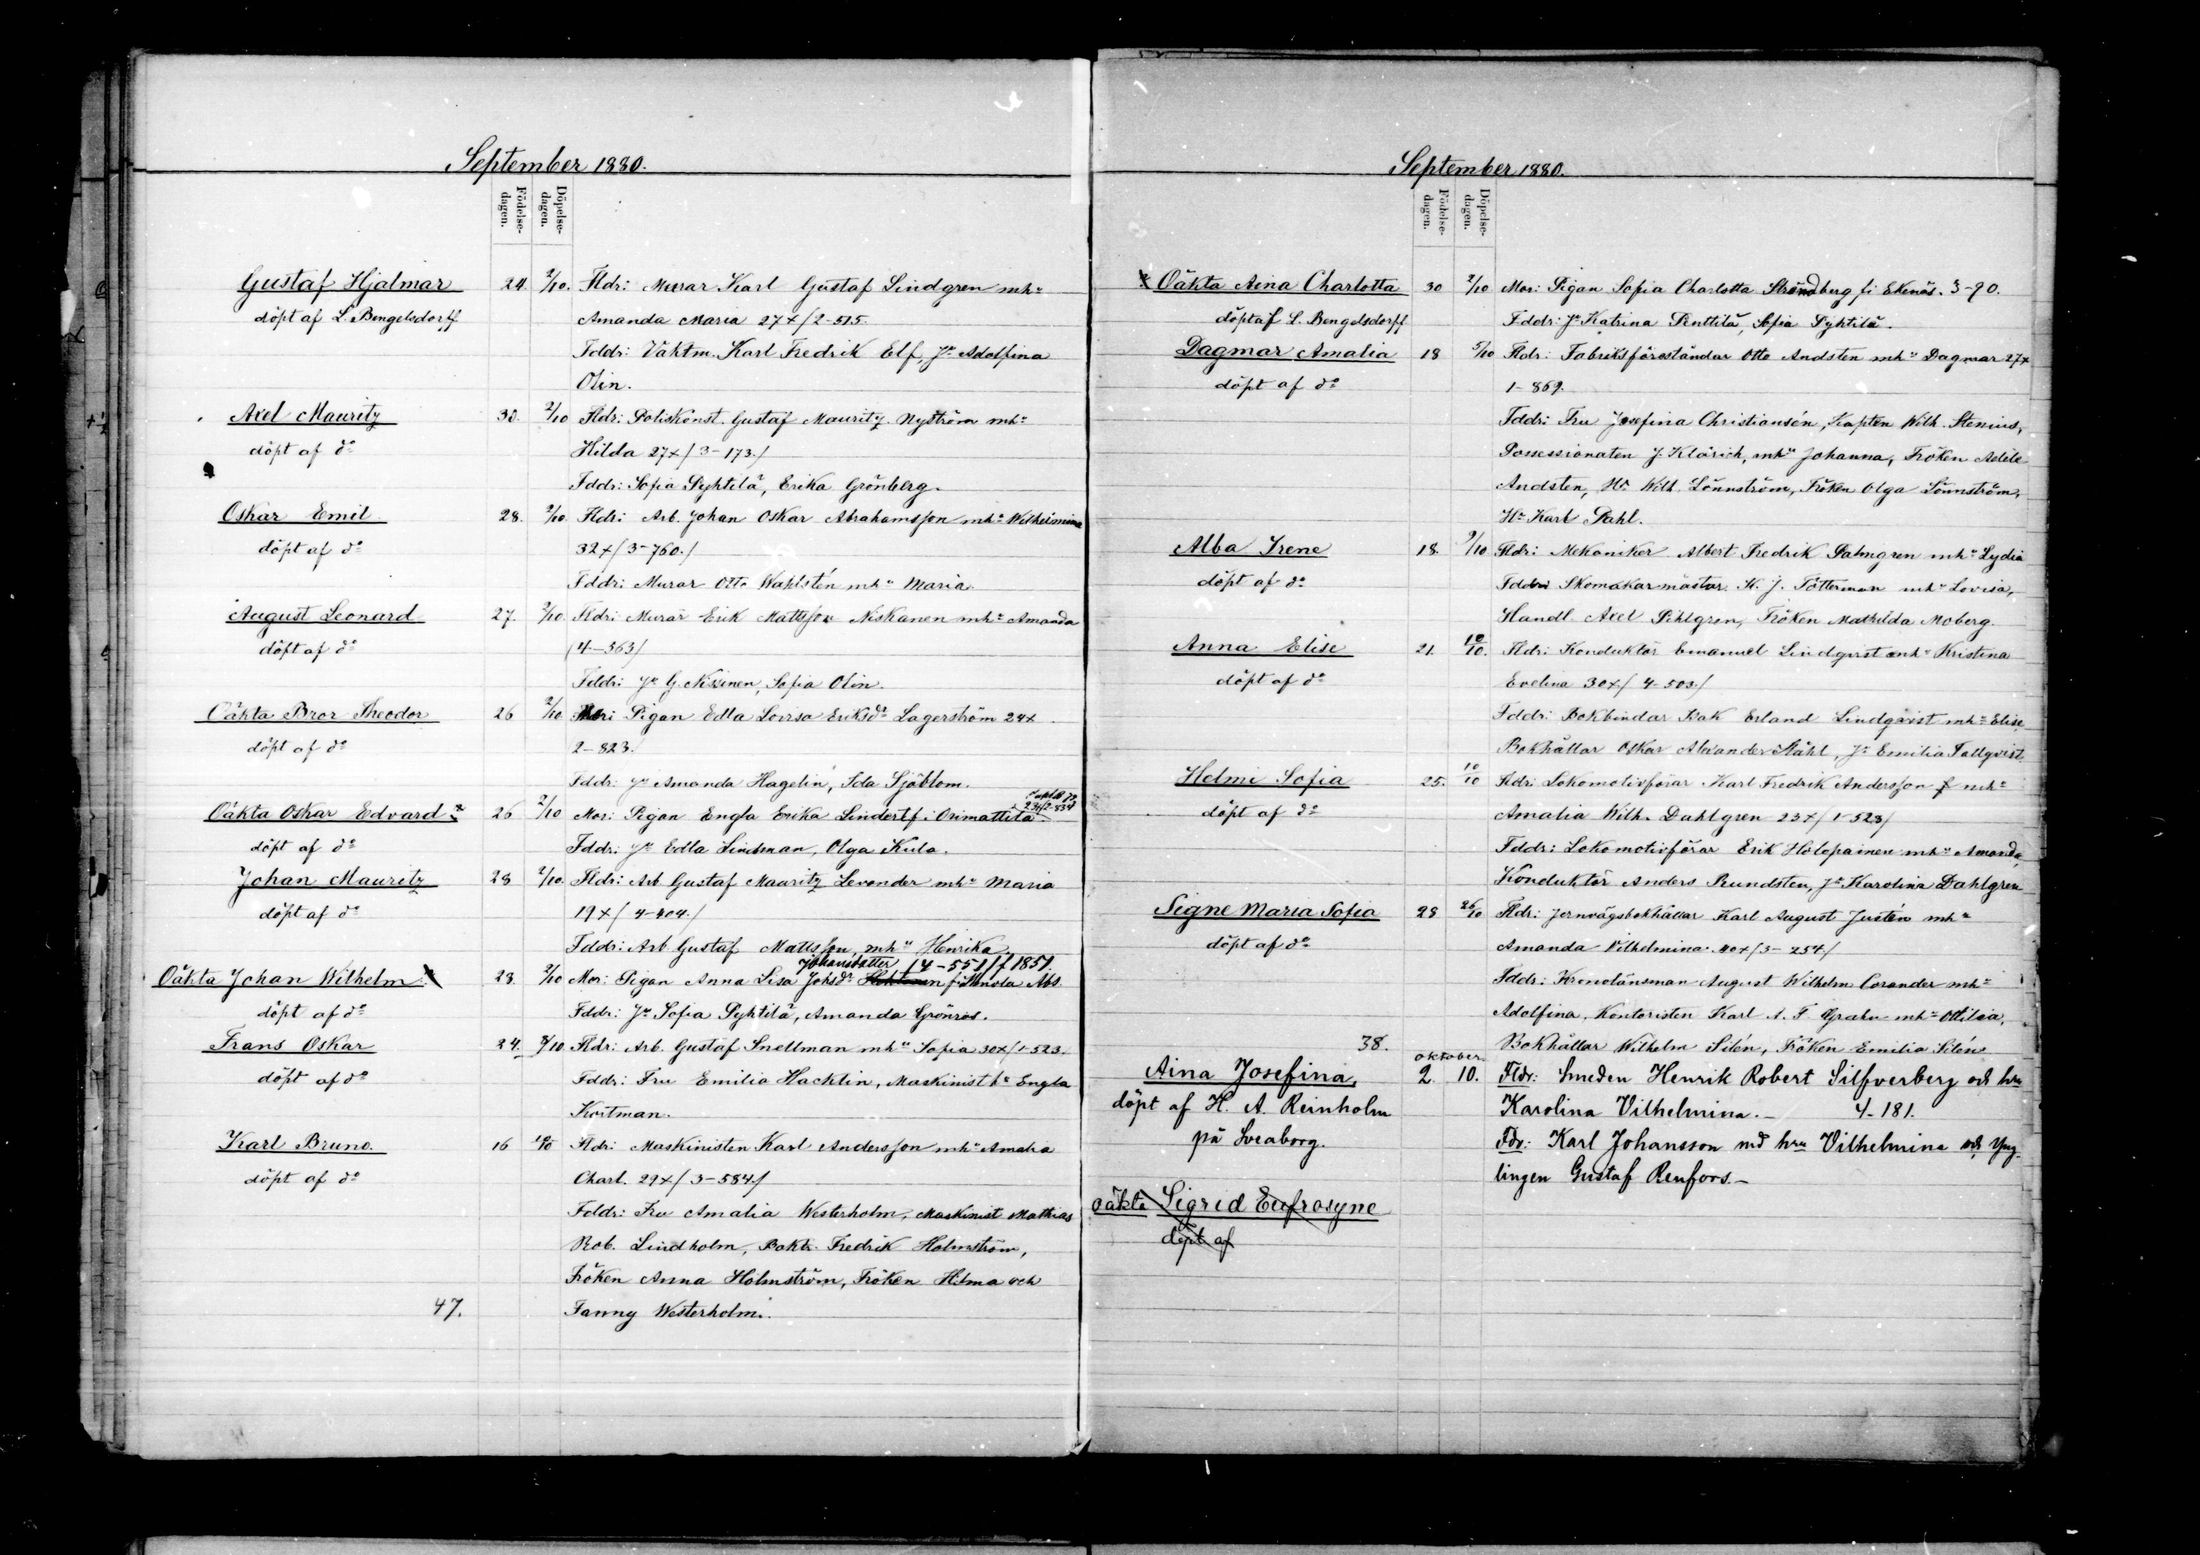 September 1880.
Födelse-
dagen.
Döpelse-
dagen.
Gustaf Hjalmar 24. 2/10. Fldr: Murar Karl Gustaf Lindgren mha
döpt af L. Bengelsdorff Amanda Maria 27+/2-515.
Fddr: Vaktm. Karl Fredrik Elf, Jn Adolfina
Olin.
Axel Mauritz 30. 2/10 Fldr: Poliskonst. Gustaf Mauritz Nyström mha
döpt af do Hilda 27+/3-173./
Fddr: Sofia Pyhtilä, Erika Grönberg.
Oskar Emil 28. 2/10. Fldr: Arb. Johan Oskar Abrahamsson mha Wilhelmina
döpt af do 32+/3-760./
Fddr: Murar Otto Wahlstén mha Maria
August Leonard 27. 2/10. Fldr: Murar Erik Mattsson Niskanen mha Amanda
döpt af do (4-363/
Fddr: Jn G. Nissinen, Sofia Olin.
Oäkta Bror Theodor 26 2/10 Mor: Pigan Edla Lovisa Eriksdr Lagerström 24+
döpt af do 2-823.
Fddr: Jn Amanda Hagelin, Ida Sjöblom.
Oäkta Oskar Edvard 26 2/10 Mor: Pigan Engla Erika Lindert fi Orimattila 2-834
döpt af do Fddr: Jn Edla Lindman, Olga Kula.
Johan Mauritz 28 2/10. Fldr: Arb. Gustaf Mauritz Levander mha Maria
döpt af do 19+/4-404./
Fddr: Arb. Gustaf Mattsson, mha Henrika
Johansdotter /4-551/ f 1851.
Oäkta Johan Wilhelm 23. 2/10 Mor: Pigan Anna Lisa Johsdr
döpt af do Fddr: Jn Sofia Pyhtilä, Amanda Grönroos.
Frans Oskar 24. 8/10. Fldr: Arb. Gustaf Snellman mha Sofia 30+/1-523.
döpt af do Fddr: Fru Emilia Hacklin, Maskinist Engla
Kortman.
Karl Bruno. 16 Fldr: Maskinisten Karl Andersson mha Amalia
döpt af do Charl. 29+/3-584/
Fddr: Fru Amalia Westerholm, Maskinist Mathias
Rob. Lindholm, Bokb. Fredrik Holmström,
Fröken Anna Holmström, Fröken Hilma och
47. Fanny Westerholm.
September 1880.
Födelse-
dagen.
Döpelse-
dagen.
Oäkta Aina Charlotta 30 2/10 Mor: Pigan Sofia Charlotta Strandberg fi Ekenäs. 3-90.
döpt af L. Bengelsdorff Fddr: Jn Katrina Penttilä, Sofia Pyhtilä.
Dagmar Amalia 18 5/10 Fldr: Fabriksföreståndar Otto Andsten mha Dagmar 27+
döpt af do 1-869.
Fddr: Fru Josefina Christiansén, Kapten Wilh. Stenius,
Possessionaten J. Klärich, mha Johanna, Fröken Adéle
Andsten, Hr Wilh. Lönnström, Fröken Olga Lönnström,
Hr Karl Stahl.
Alba Irene 18. 9/10 Fldr: Mekaniker Albert Fredrik Palmgren mha Lydia
döpt af do Fddr: Skomakarmästar K. J. Tötterman mha Lovisa,
Handl. Axel Pihlgren, Fröken Mathilda Moberg.
Anna Elise 21. 10/10. Fldr: Konduktör Emanuel Lindqvist mha Kristina
döpt af do Evelina 30+/4-503/
Fddr: Bokbindar Isak Erland Lindqvist mha Elise,
Bokhållar Oskar Alexander Ståhl, Jn Emilia Tallqvist.
Helmi Sofia 25. 10/10 Fldr: Lokomotivförar Karl Fredrik Andersson mha
döpt af do Amalia Wilh. Dahlgren 23+/1-523/
Fddr: Lokomotivförar Erik Holopainen mha Amanda,
Konduktör Anders Rundsten, Jn Karolina Dahlgren
Signe Maria Sofia 28 26/10 Fldr: Jernvägsbokhållar Karl August Justén mha
döpt af do Amanda Vilhelmina. 40+/3-254/
Fddr: Kronolänsman August Wilhelm Corander mha
Adolfina, Kontoristen Karl A. F. mha Ottilia,
38. Bokhållar Wilhelm Silén, Fröken Emilia Silén
oktober.
Aina Josefina, 2. 10. Fldr: Smeden Henrik Robert Silfverberg och hru
döpt af H. A. Reinholm Karolina Vilhelmina. — 4-181.
på Sveaborg. Fdr: Karl Johansson md hru Vilhelmina och Yng-
lingen Gustaf Renfors. —
oäkta Sigrid Eufrosyne
döpt af